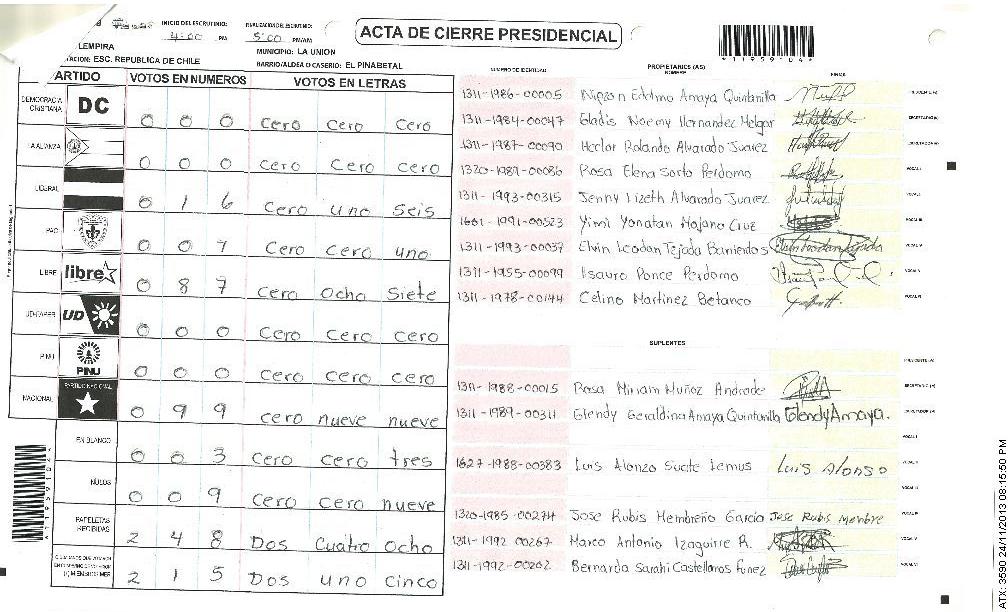 INICIO DEL ESCRUTINIO:
4:00 PM
5:00 PM/AM
ACTA DE CIERRE PRESIDENCIAL
*11959104*
LEMPIRA
MUNICIPIO: LA UNION
ESC. REPUBLICA DE CHILE
BARRIO/ALDEA O CASERIO: EL PINABETAL
NUMERO DE IDENTIDAD PROPIETARIOS (AS) NOMBRE FIRMA
PARTIDO VOTOS EN NUMEROS VOTOS EN LETRAS
DEMOCRACIA CRISTIANA DC 0 0 0 cero cero cero
LA ALIANZA 0 0 0 cero cero cero
LIBERAL 0 1 6 cero uno seis
PAC 0 0 7 cero cero uno
LIBRE libre 0 8 7 cero ocho siete
UD-FAPER UD 0 0 0 cero cero cero
PINU PINU 0 0 0 cero cero cero
NACIONAL PARTIDO NACIONAL 0 9 9 cero nueve nueve
EN BLANCO 0 0 3 cero cero tres
NULOS 0 0 9 cero cero nueve
PAPELETAS RECIBIDAS 2 4 8 Dos cuatro ocho
2 1 5 Dos uno cinco
1311-1986-00005 Eddmo Amaya Quintanilla
1311-1984-00047 Gladis Noemy Hernandez Melgar
1311-1987-00090 Hector Rolando Alvarado Juarez
1320-1989-00086 Rosa Elena Sorto Perdomo
1311-1993-00315 Jenny Lizeth Alvarado Juarez
1601-1991-00523 Yimi Yonatan Majano Cruz
1311-1993-00037 Elvin Leodan Tejada Barrientos
1311-1955-00099 Isauro Ponce Perdomo
1311-1978-00144 Celino Martinez Betanco
SUPLENTES
1311-1988-00015 Rosa Miriam Muñoz Andrade
1311-1989-00311 Glendy Geraldina Amaya Quintanilla Glendy Amaya.
1627-1988-00383 Luis Alonzo Suate Lemus Luis Alonso
1320-1985-00274 Jose Rubis Membreño Garcia Jose Rubis Membre
1311-1992-00267 Marco Antonio Izaguirre R.
1311-1992-00202 Bernarda Sarahi Castellanos Funez
*11959104*
ATX: 3590 24/11/2013 08:15:50 PM